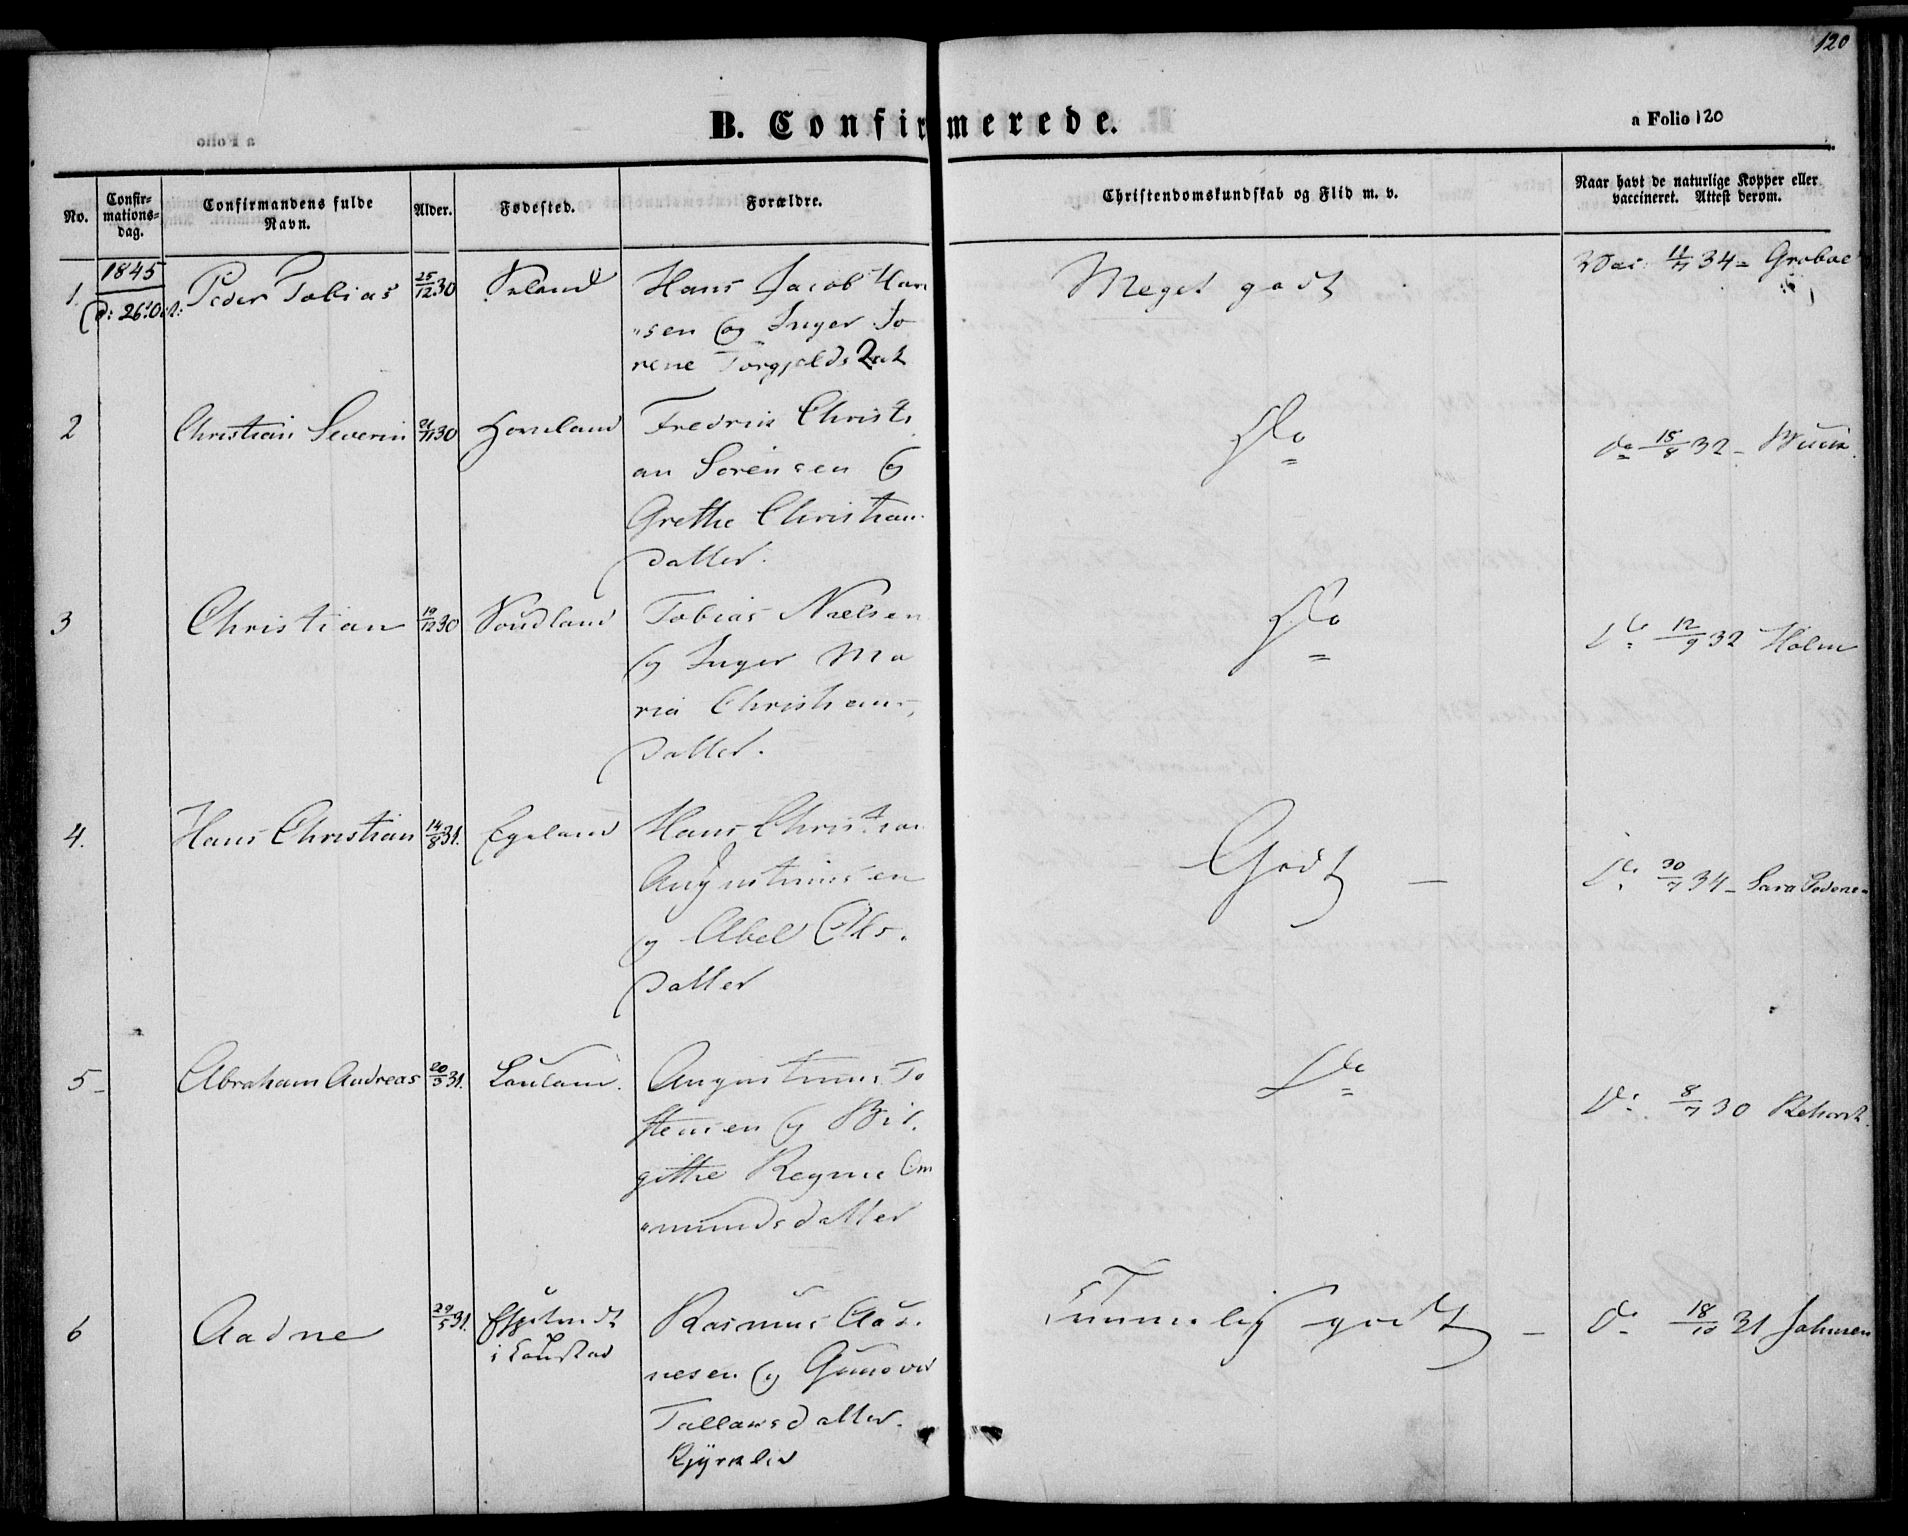 120
B. Confirmerede.
a Folio 120
No.
Confir-
mations-
dag.
Confirmandens fulde
Navn.
Alder.
Fødested.
Forældre.
Christendomskundskab og Flid m. v.
Naar havt de naturlige Kopper eller
vaccineret. Attest derom.
1845
1. d: 26: Oct: Peder Tobias 25/12 30 Hans Jacob Han
"sen og Inger To
rene Torgjelds Dat
Meget godt
Vac: 34 - Groboe
2 Christian Severin 30 Horneland Fredrik Christi
an Sørensen og
Grethe Christians
datter.
Do
do 15/8 32 -
3 Christian 19/12 30 Soudland Tobias Nielsen
og Inger Ma
ria Christians,
datter.
Do
Do 12/9 32 Holm
4. Hans Christian 14/8 31. Egeland Hans Christian
Augustinusen
og Abel Ols.
datter
Godt -
Do 30/7 34 - Sara
5 - Abraham Andreas 20/5 31. Augustinus To
stensen og Bir.
gitthe Regine Om
"mundsdatter
Do
Do 8/7 30
6 Aadne 29/5 31. Rasmus Aad.
nesen og Gunover
Tallaksdatter.
Temmelig godt -
Do 18/10 31 Johnsen